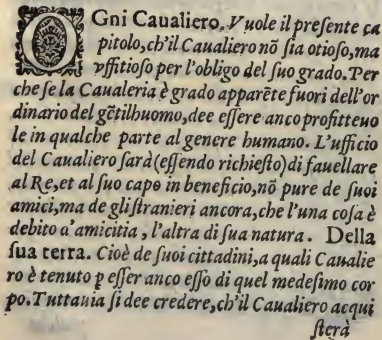 OGni Caualiero. Vuole il preſente ca
pitolo, ch'il Caualiero nõ ſia otioſo, ma
vffitioſo per l'obligo del ſuo grado. Per
che ſe la Caualeria è grado apparẽte fuori dell'or
dinario del gẽtilhuomo, dee eſſere anco profitteuo
le in qualche parte al genere humano. L'ufficio
del Caualiero ſarà (eſſendo richieſto) di fauellare
al Re, et al ſuo capo in beneficio, nõ pure de ſuoi
amici, ma de gli ſtranieri ancora, che l'una coſa è
debito a' amicitia, l'altra di ſua natura. Della
ſua terra. Cioè de ſuoi cittadini, a quali Caualie
ro è tenuto p eſſer anco eſſo di quel medeſimo cor
po. Tuttauia ſi dee credere, ch'il Caualiero acqui
ſterà